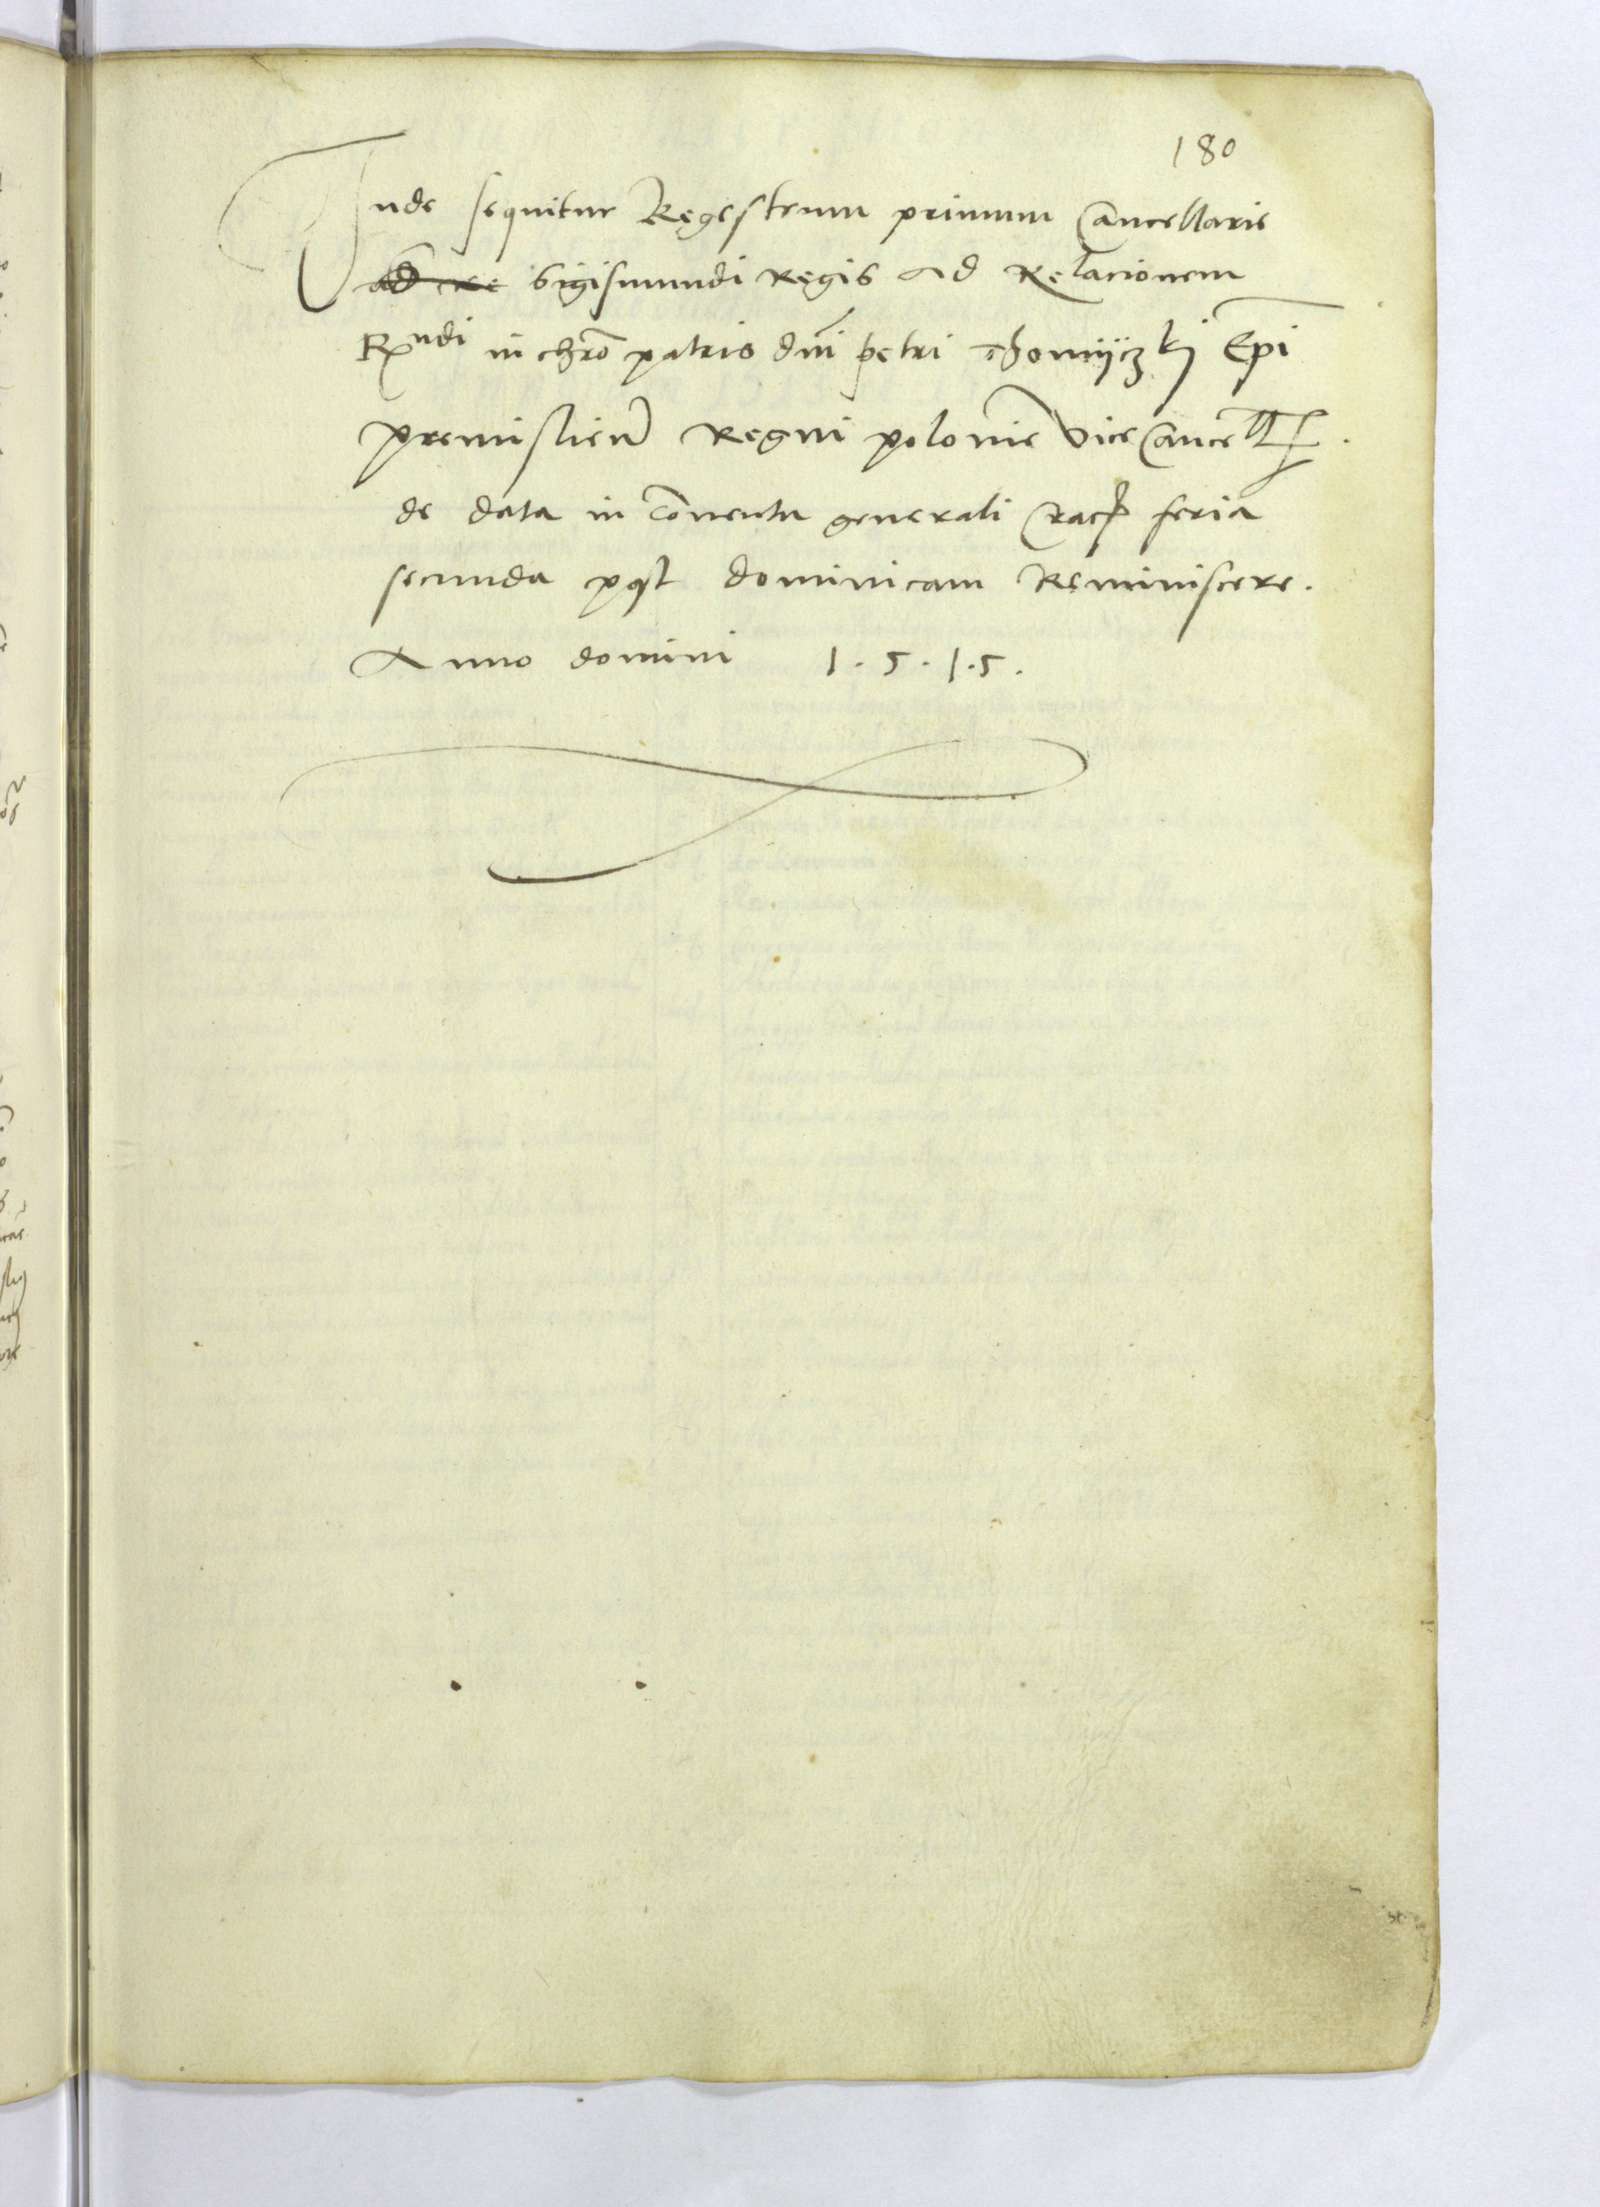 180
Inde sequitur Regestrum primum Cancellarie
ad re Sigismundi Regis Ad Relacionem
Rndi in chro patris dni petri Thomiczkj Epi
premislien Regni polonie Vicecancell
de data in Conventu generali Crac feria
secunda post dominicam Reminiscere.
Anno domini 1.5.1.5.